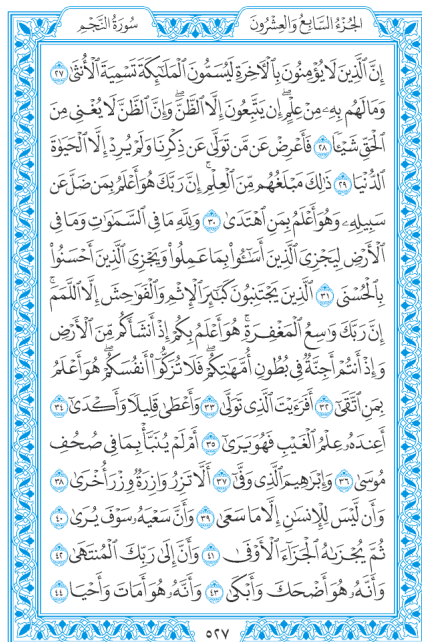 الجُزْءُ السَّابِعُ وَالعِشْرُونَ سُورَةُ النَّجْمِ
إِنَّ الَّذِينَ لَا يُؤْمِنُونَ بِالْآخِرَةِ لَيُسَمُّونَ الْمَلَائِكَةَ تَسْمِيَةَ الْأُنثَىٰ ٢٧
وَمَا لَهُم بِهِ مِنْ عِلْمٍ ۖ إِن يَتَّبِعُونَ إِلَّا الظَّنَّ ۖ وَإِنَّ الظَّنَّ لَا يُغْنِي مِنَ
الْحَقِّ شَيْئًا ٢٨ فَأَعْرِضْ عَن مَّن تَوَلَّىٰ عَن ذِكْرِنَا وَلَمْ يُرِدْ إِلَّا الْحَيَوٰةَ
الدُّنْيَا ٢٩ ذَٰلِكَ مَبْلَغُهُم مِّنَ الْعِلْمِ ۚ إِنَّ رَبَّكَ هُوَ أَعْلَمُ بِمَن ضَلَّ عَن
سَبِيلِهِ وَهُوَ أَعْلَمُ بِمَنِ اهْتَدَىٰ ٣٠ وَلِلَّهِ مَا فِي السَّمَٰوَٰتِ وَمَا فِي
الْأَرْضِ لِيَجْزِيَ الَّذِينَ أَسَٰٓـُٔوا بِمَا عَمِلُوا وَيَجْزِيَ الَّذِينَ أَحْسَنُوا
بِالْحُسْنَى ٣١ الَّذِينَ يَجْتَنِبُونَ كَبَٰٓئِرَ الْإِثْمِ وَالْفَوَٰحِشَ إِلَّا اللَّمَمَ ۚ
إِنَّ رَبَّكَ وَٰسِعُ الْمَغْفِرَةِ ۚ هُوَ أَعْلَمُ بِكُمْ إِذْ أَنشَأَكُم مِّنَ الْأَرْضِ
وَإِذْ أَنتُمْ أَجِنَّةٌ فِي بُطُونِ أُمَّهَٰتِكُمْ ۖ فَلَا تُزَكُّوا أَنفُسَكُمْ ۖ هُوَ أَعْلَمُ
بِمَنِ اتَّقَىٰ ٣٢ أَفَرَءَيْتَ الَّذِي تَوَلَّىٰ ٣٣ وَأَعْطَىٰ قَلِيلًا وَأَكْدَىٰ ٣٤
أَعِندَهُ عِلْمُ الْغَيْبِ فَهُوَ يَرَىٰ ٣٥ أَمْ لَمْ يُنَبَّأْ بِمَا فِي صُحُفِ
مُوسَىٰ ٣٦ وَإِبْرَٰهِيمَ الَّذِي وَفَّىٰ ٣٧ أَلَّا تَزِرُ وَازِرَةٌ وِزْرَ أُخْرَىٰ ٣٨
وَأَن لَّيْسَ لِلْإِنسَٰنِ إِلَّا مَا سَعَىٰ ٣٩ وَأَنَّ سَعْيَهُ سَوْفَ يُرَىٰ ٤٠
ثُمَّ يُجْزَىٰهُ الْجَزَآءَ الْأَوْفَىٰ ٤١ وَأَنَّ إِلَىٰ رَبِّكَ الْمُنتَهَىٰ ٤٢
وَأَنَّهُ هُوَ أَضْحَكَ وَأَبْكَىٰ ٤٣ وَأَنَّهُ هُوَ أَمَاتَ وَأَحْيَا ٤٤
٥٢٧